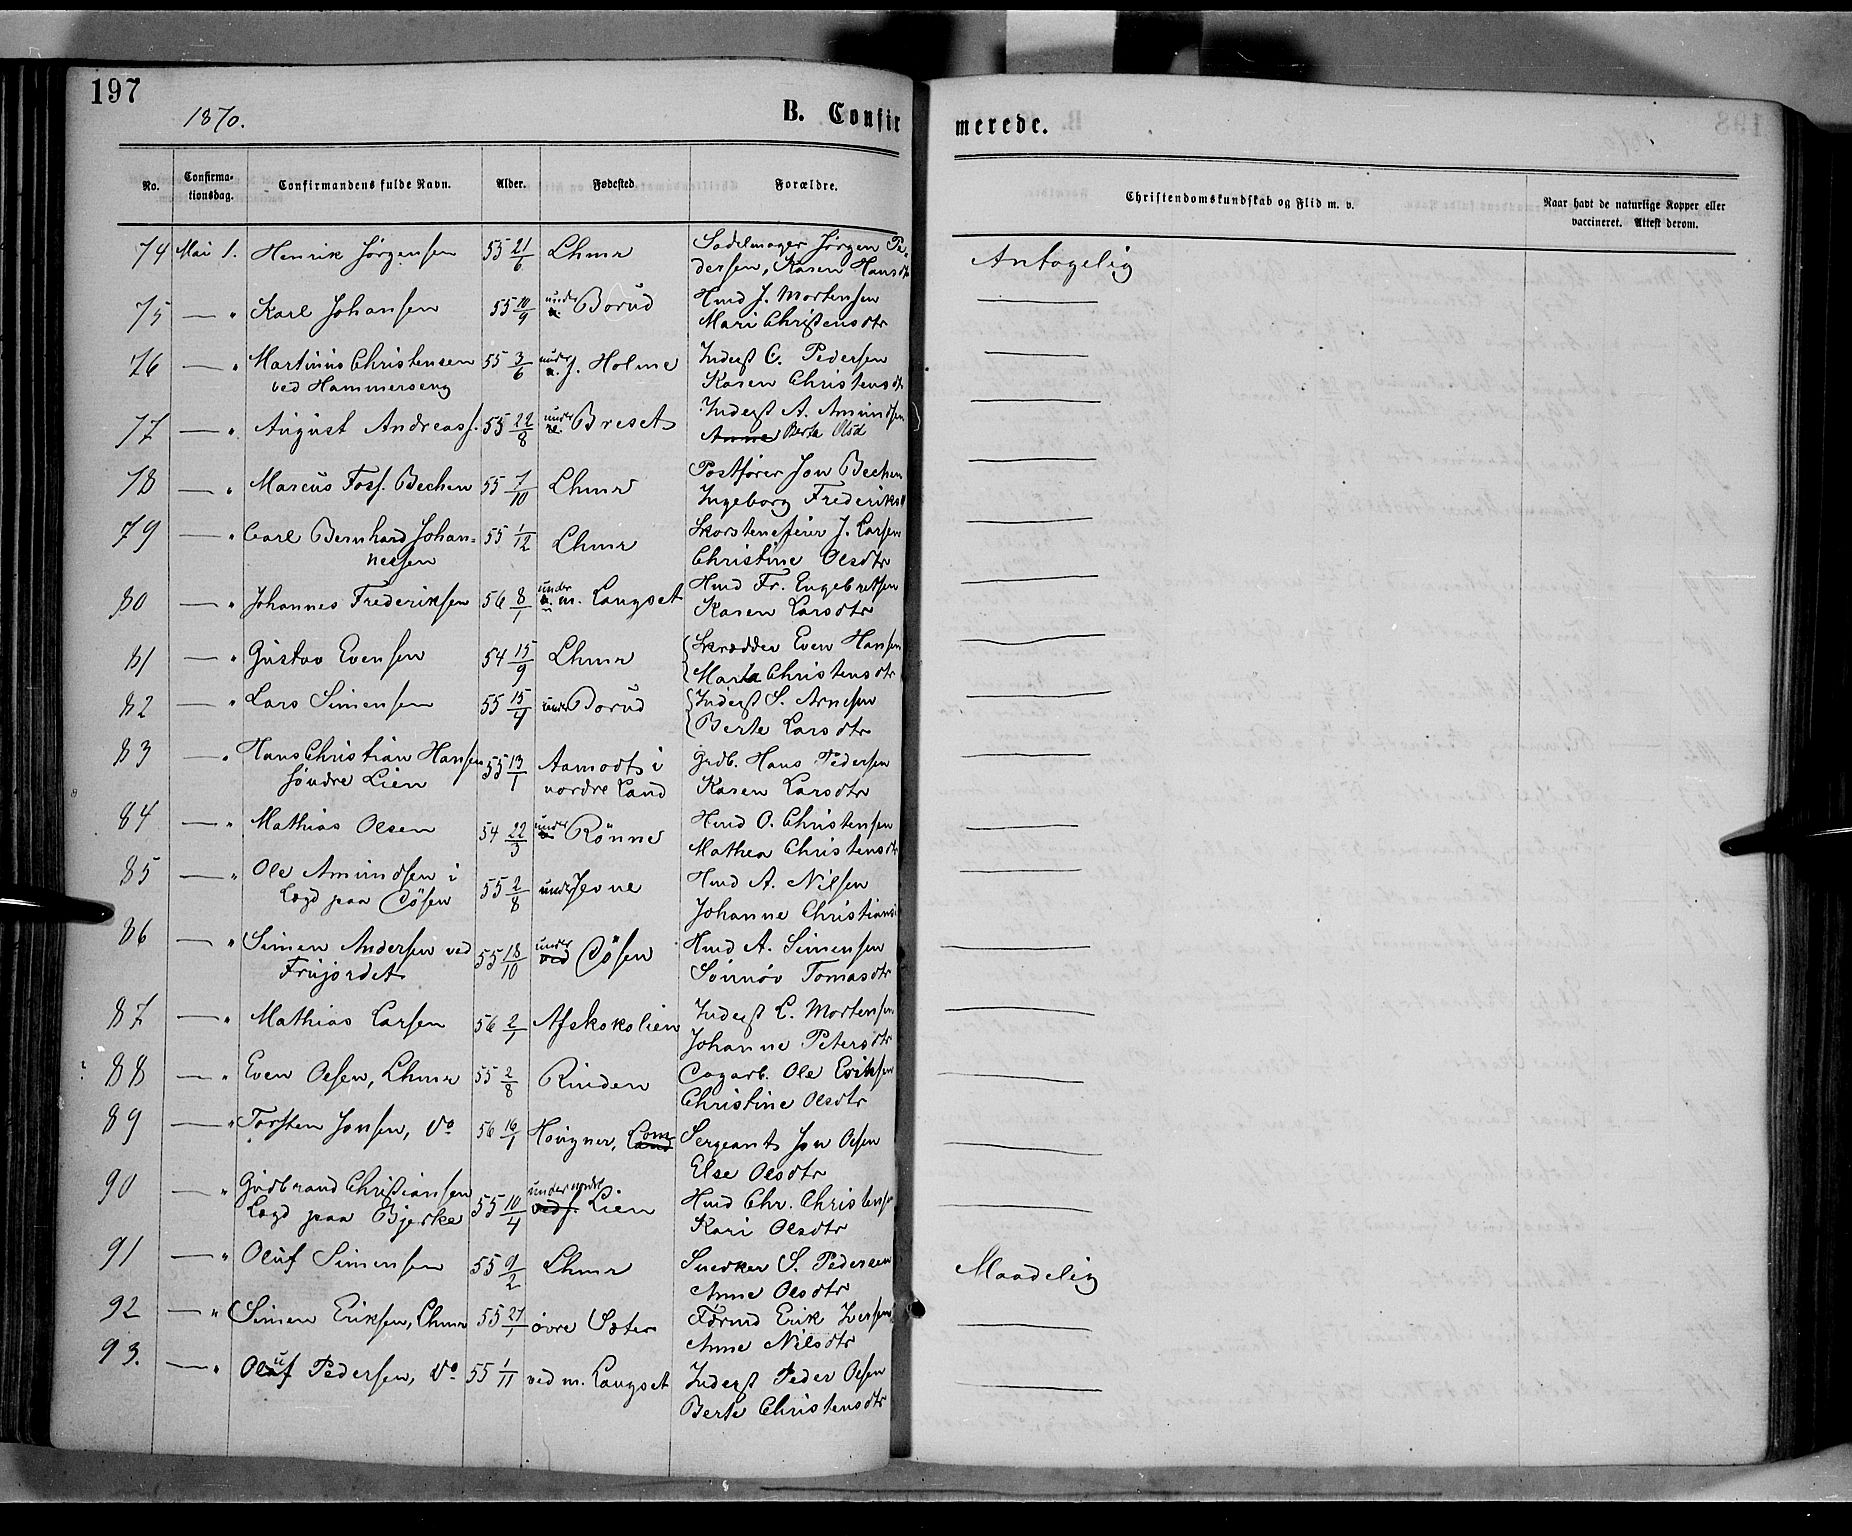 197
1870.
B. Confirmerede.
No. Confirmationsdag. Confirmandens fulde Navn. Alder. Fødested Forældre. Christendomskundskab og Flid m. v. Naar havt de naturlige Kopper eller vaccineret. Attest derom.
74 Mai 1. Henrik Jørgensen 55 21/6 Lhmr Sadelmager Jörgen Pe-
dersen, Karen Hansdtr Antagelig
75 — " Karl Johansen 55 10/9 under Borud Hmd J. Mortensen
Mari Christensdtr —
76 — " Martinus Christensen 55 3/6 under J. Holme Inderst C. Pedersen
ved Hammerseng Karen Christensdtr —
77 — " August Andreass. 55 22/8 under Breset Inderst A. Amundsen
Anne Berte Olsd —
78 — " Marcus Fosf. Bechen 55 7/10 Lhmr Postfører Jon Bechen
Ingeborg Frederiksd —
79 — " Carl Bernhard Johan- 55 1/12 Lhmr Skorstensfeier J. Larsen
nessen Christine Olsdtr —
80 — " Johannes Frederiksen 56 8/1 under m. Langset Hmd Fr. Engebretsen
Karen Larsdtr —
81 — " Gustav Evensen 54 15/9 Lhmr Skrædder Even Hansen
Marta Christensdtr —
82 — " Lars Simensen 55 15/4 under Borud Inderst S. Arnesen
Berte Larsdtr —
83 — " Hans Christian Hansen 55 13/1 Aamodt i Grdb. Hans Pedersen
søndre Lien nordre Land Karen Larsdtr —
84 — " Mathias Olsen 54 22/3 under Rönne Hmd O. Christensen
Mathea Christensdtr —
85 — " Ole Amundsen i 55 2/8 under Jevne Hmd A. Nilsen
Lægd paa Løsen Johanne Christiansd —
86 — " Simen Andersen ved 55 18/10 under ved Løsen Hmd A. Simensen
Frujordet Sønnøv Tomasdtr —
87 — " Mathias Larsen 56 2/1 Afskokolien Inderst L. Mortensen
Johanne Petersdtr —
88 — " Even Olsen, Lhmr 55 2/8 Rinden Logarb. Ole Eriksen
Christine Olsdtr —
89 — " Torsten Jonsen, do 56 16/1 Hougner, Land Sergeant Jon Olsen
Else Olsdtr —
90 — " Gudbrand Christiansen 55 10/4 under nordre ved J. Lien Hmd Chr. Christensen
Lægd paa Bjerke Kari Olsdtr —
91 — " Oluf Simensen 55 9/2 Lhmr Snedker S. Pedersen
Anne Olsdtr Maadelig
92 — " Simen Eriksen, Lhmr 55 21/1 övre Sæter Førmd Erik Iversen
Anne Nilsdtr —
93. — " Oluf Pedersen, do 55 1/11 ved m. Langset Inderst Peder Olsen
Berte Christensdtr —